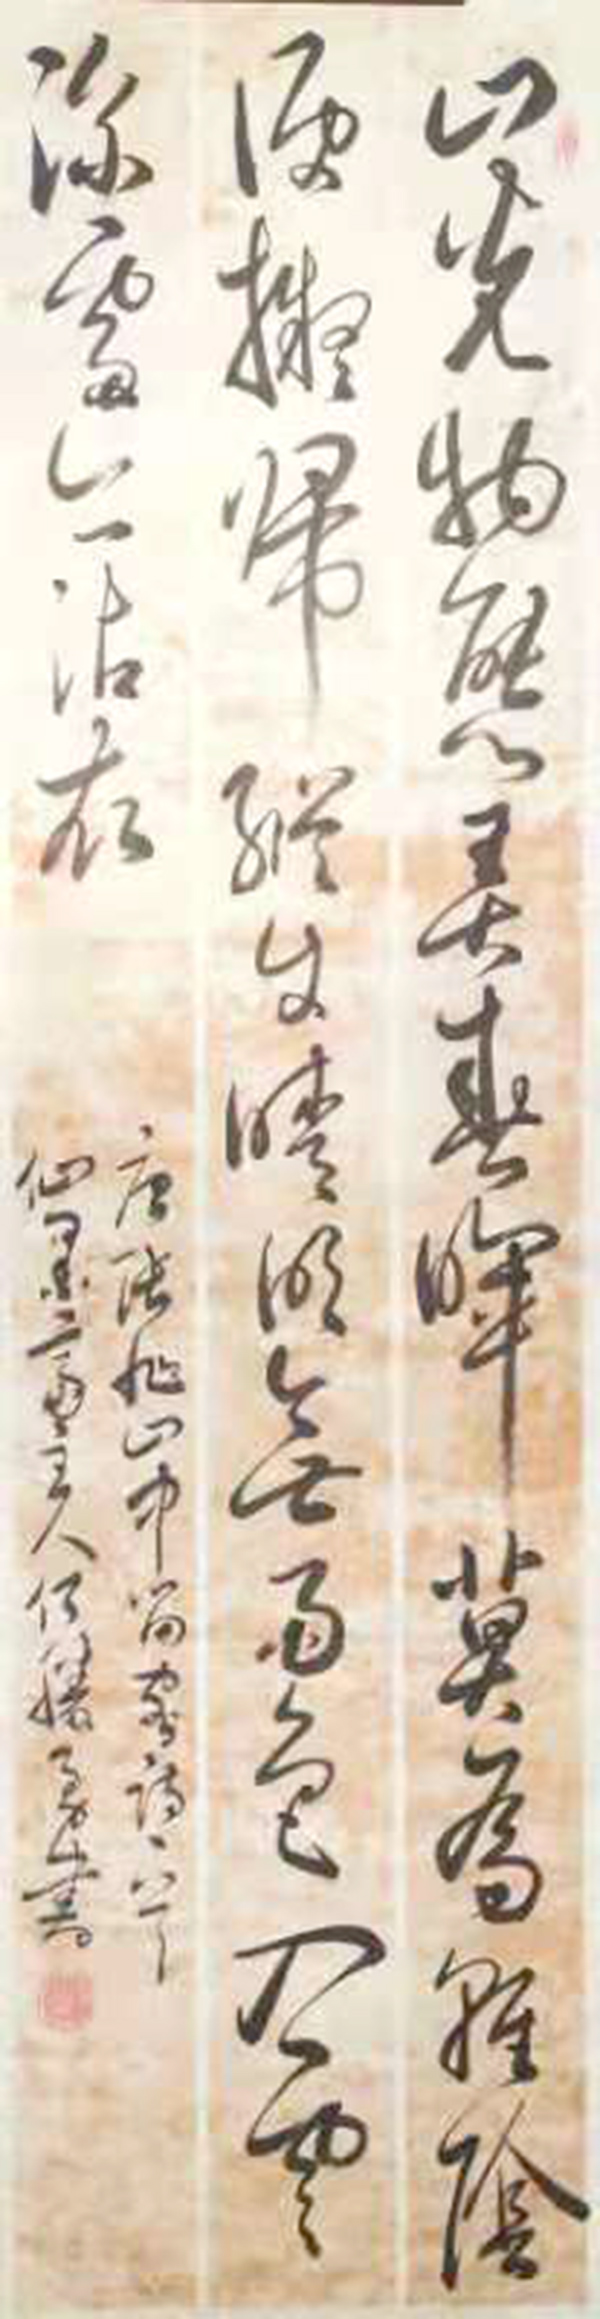 山光物態弄春暉莫為輕陰
便擬歸縱使晴明無雨色入雲
深處亦沾衣
唐張旭山中留客詩
仙墨齋主人 勇書